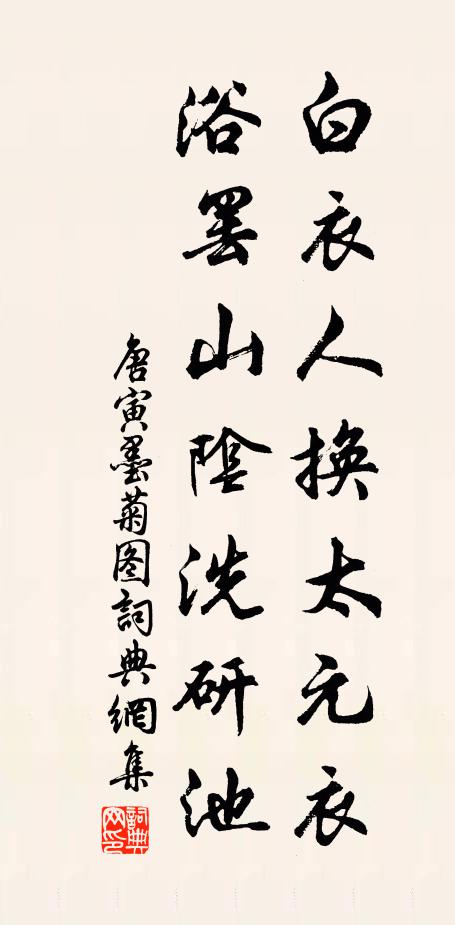 白衣人換太元衣
浴罢山陰洗研池
唐寅墨菊图詞典網集
詞典網印